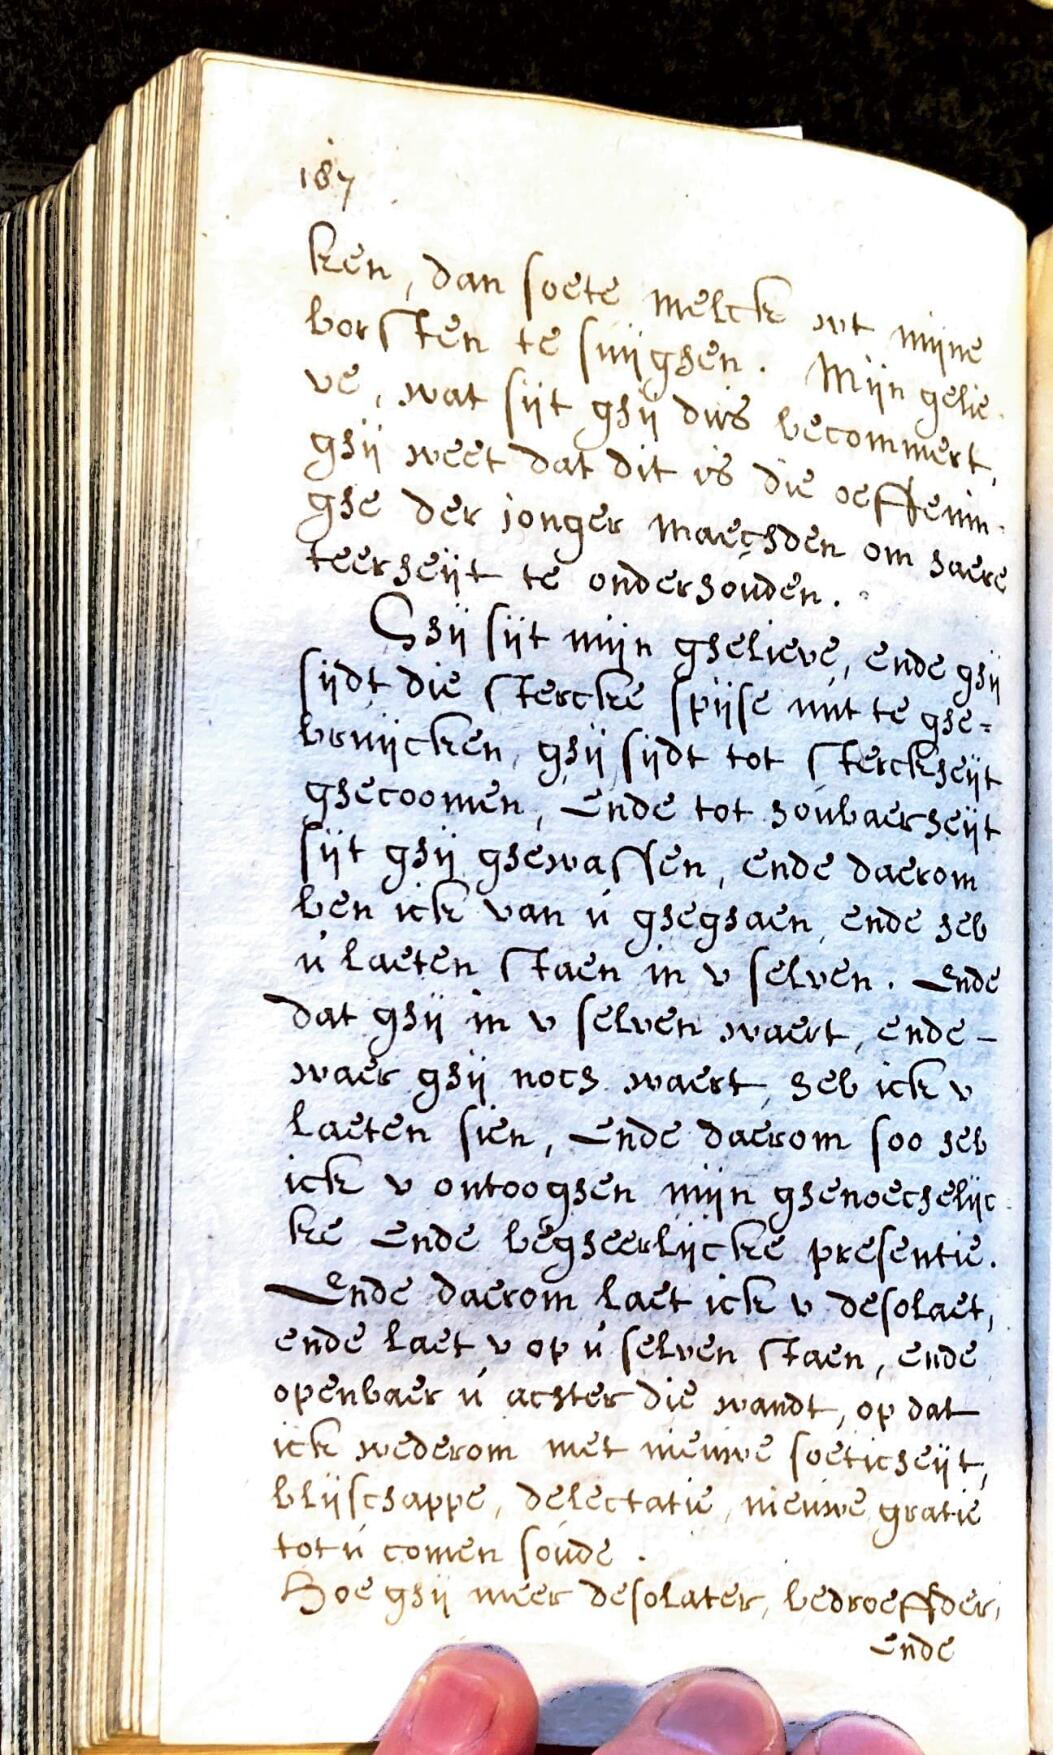 187
ken, dan soete melck wt mijne
borsten te suijghen. Mijn gelie-
ve, wat sijt ghij dus becommert,
ghij weet dat dit is die oeffenin-
ghe der jonger maechden om haere
teerheijt te onderhouden.
Ghij sijt mijn ghelieve, ende ghij
sijdt die stercke spijse nut te ghe=
bruijcken, ghij sijdt tot sterckheijt
ghecoomen, Ende tot houbaerheijt
sijt ghij ghewassen, ende daerom
ben ick van ú gheghaen, ende heb
ú laeten staen in v selven. Ende
dat ghij in v selven waert, ende -
waer ghij noch waert, heb ick v
laeten sien, Ende daerom soo heb
ick v ontooghen mijn ghenoechelijc-
ke Ende begheerlijcke presentie.
Ende daerom laet ick v desolaet,
ende laet v op ú selven staen, ende
openbaer ú achter die wandt, op dat
ick wederom met nieuwe soeticheijt,
blijschappe, delectatie, nieuwe gratie
tot ú comen soude.
Hoe ghij meer desolater, bedroeffder,
Ende